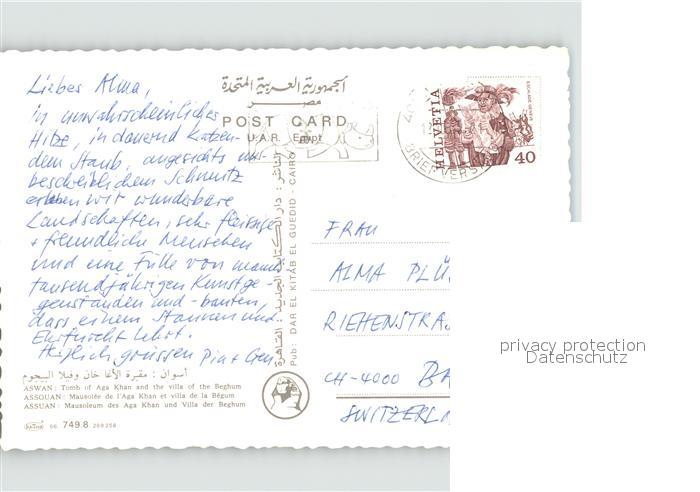 Liebes Alma,
in unwahrscheinlicher
Hitze, in dauernd
dem Staub, angesichts un-
beschreiblichem Schmutz
erleben wir wunderbare
Landschaften, sehr fleissige
+ freundliche Menschen
und eine Fülle von
tausendjährigen Kunstge-
genständen und -bauten,
dass einem Staunen und
Ehrfurcht lehrt.
Herzlich grüssen Pia +
الجمهورية العربية المتحدة
مصر
POST CARD
U.A.R. Egypt
HELVETIA
ESCALADE GENÈVE
40
BRIEFVERS
الناشر : دار الكتاب الجديد : القاهرة
Pub: DAR EL KITÂB EL GUEDID - CAIRO
FRAU
ALMA PLÜ
RIEHENSTRA
CH-4000 BA
SWITZERL
privacy protection
Datenschutz
أسوان : مقبرة الأغا خان وفيلا البيجوم
ASWAN: Tomb of Aga Khan and the villa of the Beghum
ASSOUAN: Mausolée de l'Aga Khan et villa de la Bégum
ASSUAN: Mausoleum des Aga Khan und Villa der Beghum
66 749.8 268 258